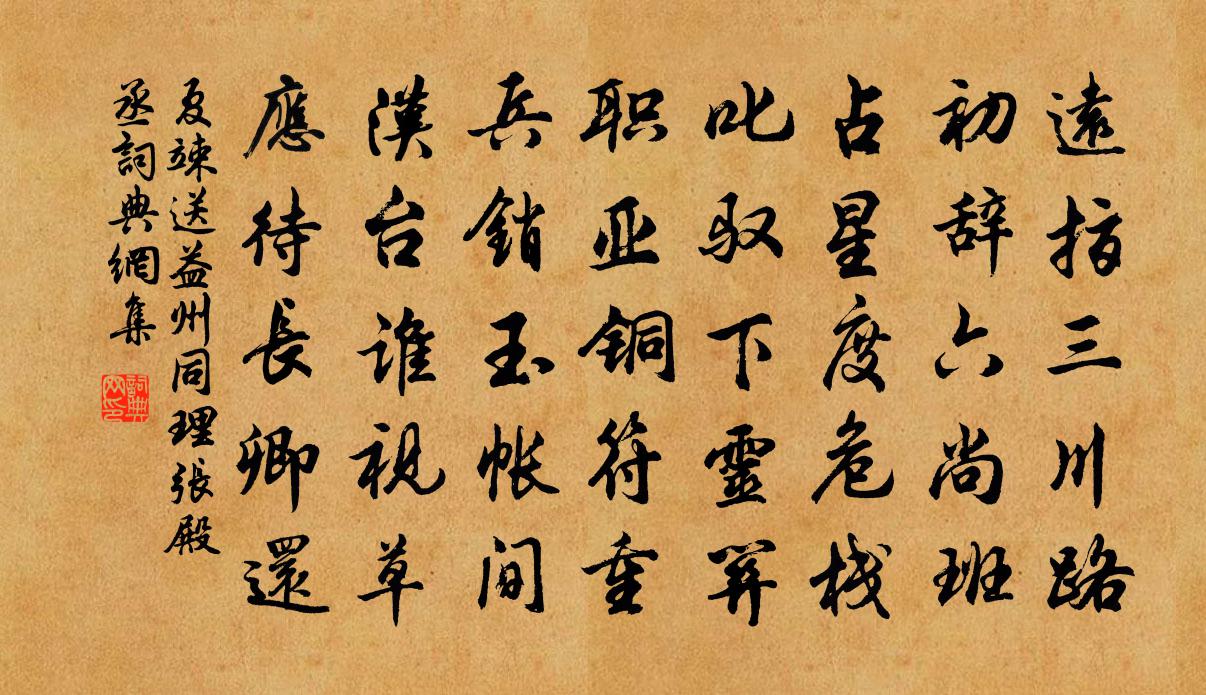 遠指三川路
初辞六尚班
占星度危栈
叱驭下靈関
职亚铜符重
兵銷玉帐间
漢台谁視草
應待長卿還
夏竦送益州同理張殿
丞詞典網集
詞典网印